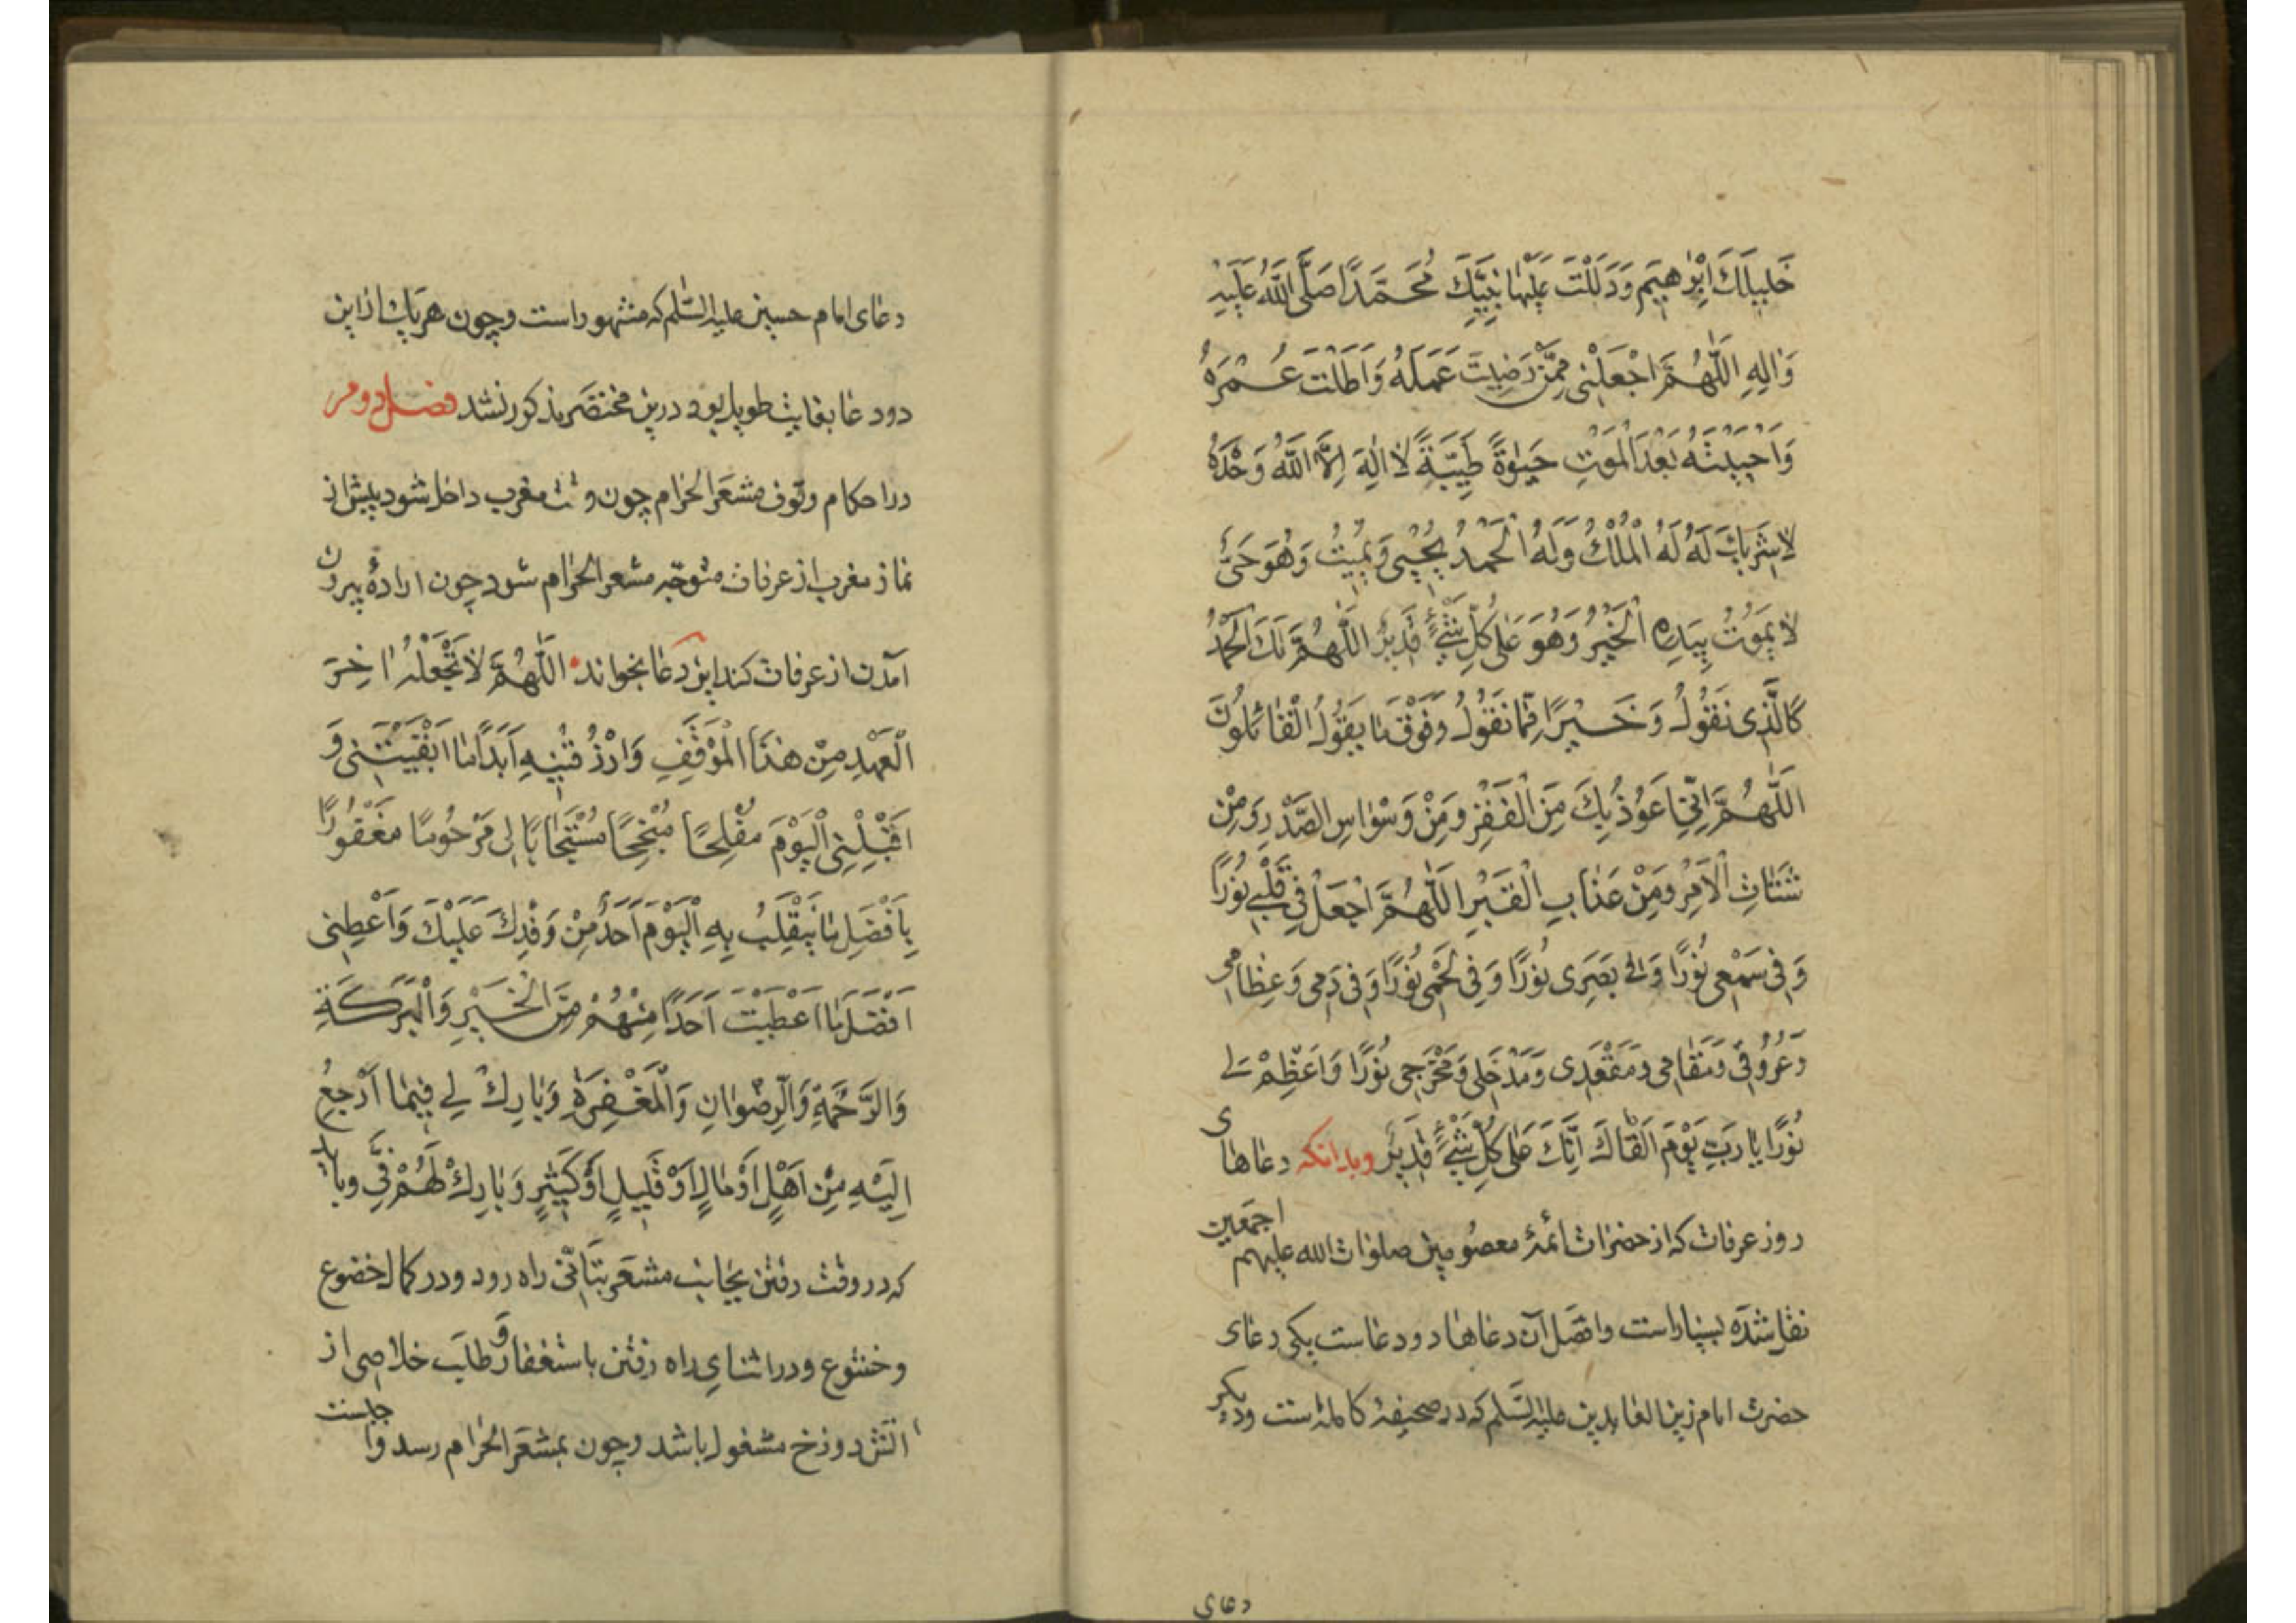 خَلیلَكَ اِبْرٰهیمَ وَدَلَلْتَ عَلَیْهٰا نَبِیَّكَ مُحَمَّدًا صَلَّی اللّٰهُ عَلَیْهِ
وَاٰلِهِ اَللّٰهُمَّ اجْعَلْنی مِمَّنْ رَضیتَ عَمَلَهُ وَاَطَلْتَ عُمْرَهُ
وَاَحْیَیْتَهُ بَعْدَ الْمَوْتِ حَیٰوةً طَیِّبَةً لٰا اِلٰهَ اِلَّا اللّٰهُ وَحْدَهُ
لٰا شَریكَ لَهُ لَهُ الْمُلْكُ وَلَهُ الْحَمْدُ یُحْیی وَیُمیتُ وَهُوَ حَیٌّ
لٰا یَمُوتُ بِیَدِهِ الْخَیْرُ وَهُوَ عَلٰی كُلِّ شَیْءٍ قَدیرٌ اَللّٰهُمَّ لَكَ الْحَمْدُ
كَالَّذی نَقُولُ وَخَیْرًا مِمّٰا نَقُولُ وَفَوْقَ مٰا یَقُولُ الْقٰائِلُونَ
اَللّٰهُمَّ اِنّی اَعُوذُ بِكَ مِنَ الْفَقْرِ وَمِنْ وَسْوٰاسِ الصَّدْرِ وَمِنْ
شَتٰاتِ الْاَمْرِ وَمِنْ عَذٰابِ الْقَبْرِ اَللّٰهُمَّ اجْعَلْ فی قَلْبی نُورًا
وَفی سَمْعی نُورًا وَفی بَصَری نُورًا وَفی لَحْمی نُورًا وَفی دَمی وَعِظٰامی
وَعُرُوقی وَمَقٰامی وَمَقْعَدی وَمَدْخَلی وَمَخْرَجی نُورًا وَاَعْظِمْ لی
نُورًا یٰا رَبِّ یَوْمَ اَلْقٰاكَ اِنَّكَ عَلٰی كُلِّ شَیْءٍ قَدیرٌ وبدانکه دعاهای
روز عرفات که از حضرات ائمهٔ معصومین صلوات الله علیهم اجمعین
نقل شده بسیار است وافضل آن دعاها دو دعاست یکی دعای
حضرت امام زین العابدین علیه السّلم که در صحیفهٔ کامله است ودیکر
دعای
دعای امام حسین علیه السّلم که مشهور است وچون هریك از این
دو دعا بغایت طویل بود درین مختصر مذکور نشد فصل دوم
در احکام وقوف مشعر الحرام چون وقت مغرب داخل شود پیش از
نماز مغرب از عرفات متوجّه مشعر الحرام شود چون ارادهٔ بیرون
آمدن از عرفات کند این دعا بخواند اَللّٰهُمَّ لٰا تَجْعَلْهُ اٰخِرَ
الْعَهْدِ مِنْ هٰذَا الْمَوْقِفِ وَارْزُقْنیهِ اَبَدًا مٰا اَبْقَیْتَنی وَ
اقْلِبْنِی الْیَوْمَ مُفْلِحًا مُنْجِحًا مُسْتَجٰابًا لی مَرْحُومًا مَغْفُورًا
بِاَفْضَلِ مٰا یَنْقَلِبُ بِهِ الْیَوْمَ اَحَدٌ مِنْ وَفْدِكَ عَلَیْكَ وَاَعْطِنی
اَفْضَلَ مٰا اَعْطَیْتَ اَحَدًا مِنْهُمْ مِنَ الْخَیْرِ وَالْبَرَكَةِ
وَالرَّحْمَةِ وَالرِّضْوٰانِ وَالْمَغْفِرَةِ وَبٰارِكْ لی فیمٰا اَرْجِعُ
اِلَیْهِ مِنْ اَهْلٍ اَوْ مٰالٍ اَوْ قَلیلٍ اَوْ كَثیرٍ وَبٰارِكْ لَهُمْ فِیَّ وباید
که در وقت رفتن بجانب مشعر بتأنّی راه رود ودر کمال خضوع
وخشوع ودر اثنای راه رفتن باستغفار وطلب خلاصی از
اتش دوزخ مشغول باشد وچون بمشعر الحرام رسد واجبست